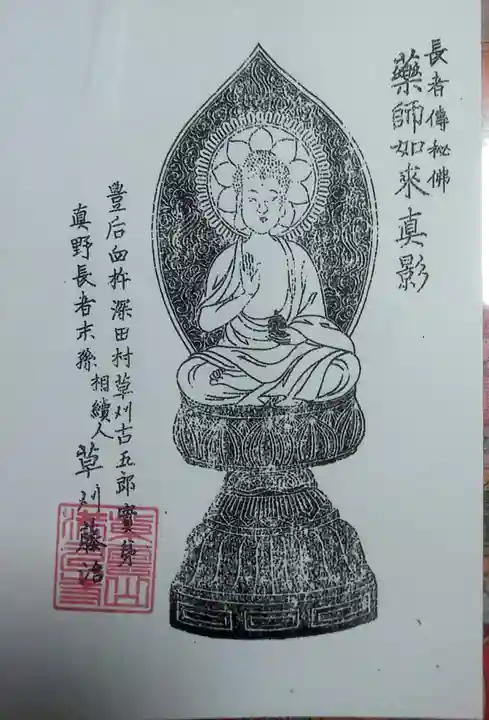 長者傳秘佛
藥師如來真影
豊后臼杵深田村草刈古五郎實弟
真野長者末孫相續人草刈藤治